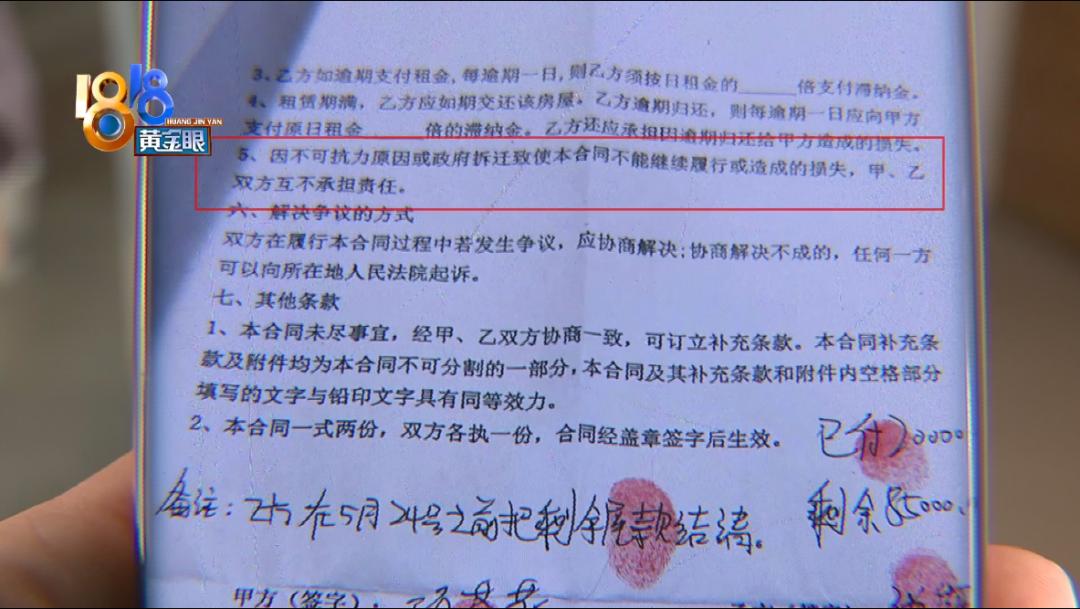 1818
HUANG JIN YAN
黄金眼
3、乙方如逾期支付租金,每逾期一日,则乙方须按日租金的______倍支付滞纳金。
4、租赁期满，乙方应如期交还该房屋。乙方逾期归还，则每逾期一日应向甲方
支付原日租金______倍的滞纳金。乙方还应承担因逾期归还给甲方造成的损失。
5、因不可抗力原因或政府拆迁致使本合同不能继续履行或造成的损失，甲、乙
双方互不承担责任。
六、解决争议的方式
双方在履行本合同过程中若发生争议，应协商解决;协商解决不成的，任何一方
可以向所在地人民法院起诉。
七、其他条款
1、本合同未尽事宜，经甲、乙双方协商一致，可订立补充条款。本合同补充条
款及附件均为本合同不可分割的一部分,本合同及其补充条款和附件内空格部分
填写的文字与铅印文字具有同等效力。
2、本合同一式两份，双方各执一份，合同经盖章签字后生效。
已付20000
备注：乙方在5月24号之前把剩余尾款结清。
剩余85000.
甲方（签字）：